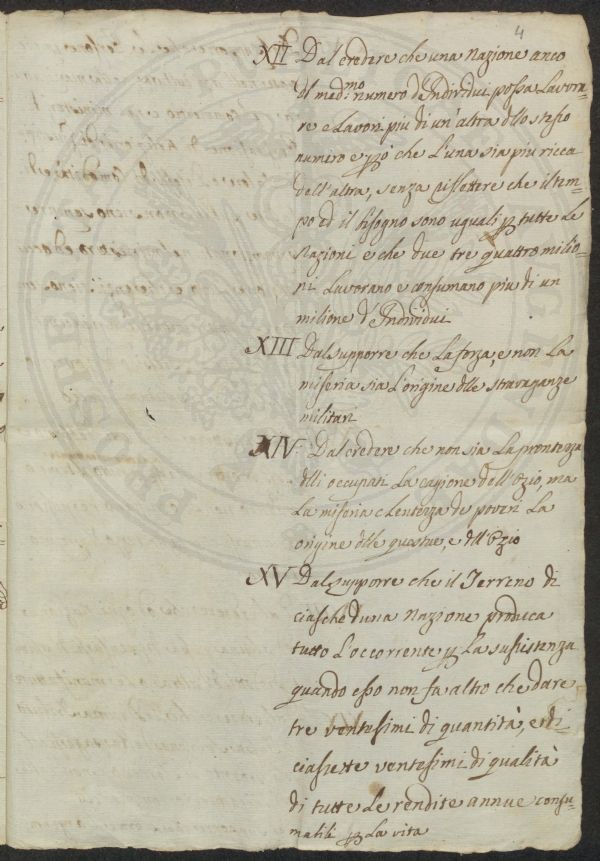 4
XII Dal credere che una Nazione anco
del med:mo numero d'Individui possa Lavora-
re e Lavori piu di un'altra dello stesso
numero e che l'una sia piu ricca
dell'altra, senza riflettere che il tem-
po ed il bisogno sono uguali tutte Le
Nazioni e che due tre quattro milio-
ni Lavorano e consumano piu di un
milione d'Individui
XIII Dal supporre che La forza, e non La
miseria sia L'origine delle stravaganze
militari
XIV: Dal credere che non sia La prontezza
delli occupati La cagione dell'Ozio, ma
La miseria e Lentezza de poveri La
origine delle questue, e dell'Ozio
XV Dal supporre che il Terreno di
ciascheduna Nazione produca
tutto L'occorrente La sussistenza
quando esso non fa altro che dare
tre ventesimi di quantità, e di
ciasette ventesimi di qualità
di tutte Le rendite annue consu-
mabili La vita